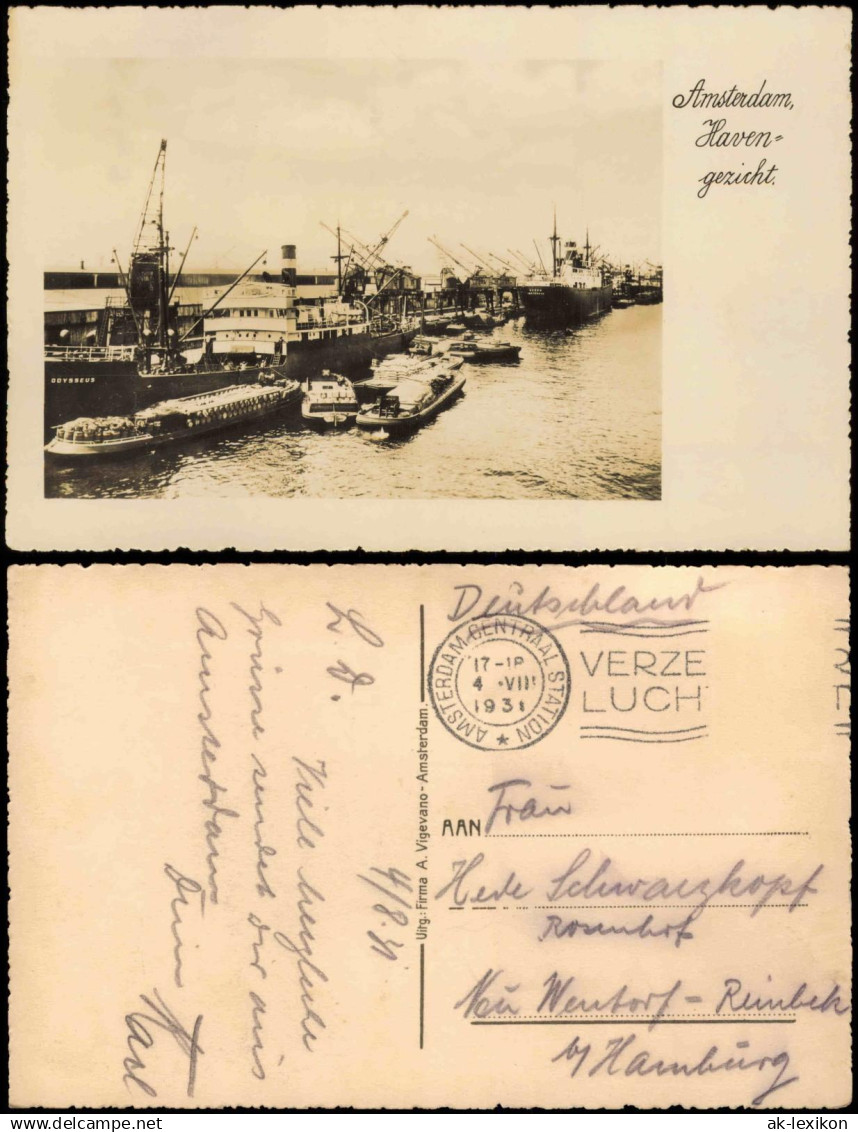 Amsterdam,
Haven=
gezicht.
ODYSSEUS
Deutschland
AMSTERDAM CENTRAAL STATION
17-18
4 VIII
1931
VERZE
LUCH
AAN Frau
Hede Schwarzkopf
Rosenhof
Neu Wentorf = Reinbek
b/ Hamburg
Uitg.: Firma A. Vigevano - Amsterdam.
4/8.31
L. D.
Viele herzliche
Grüsse sendet dir aus
Amsterdam
Dein
Karl
ak-lexikon